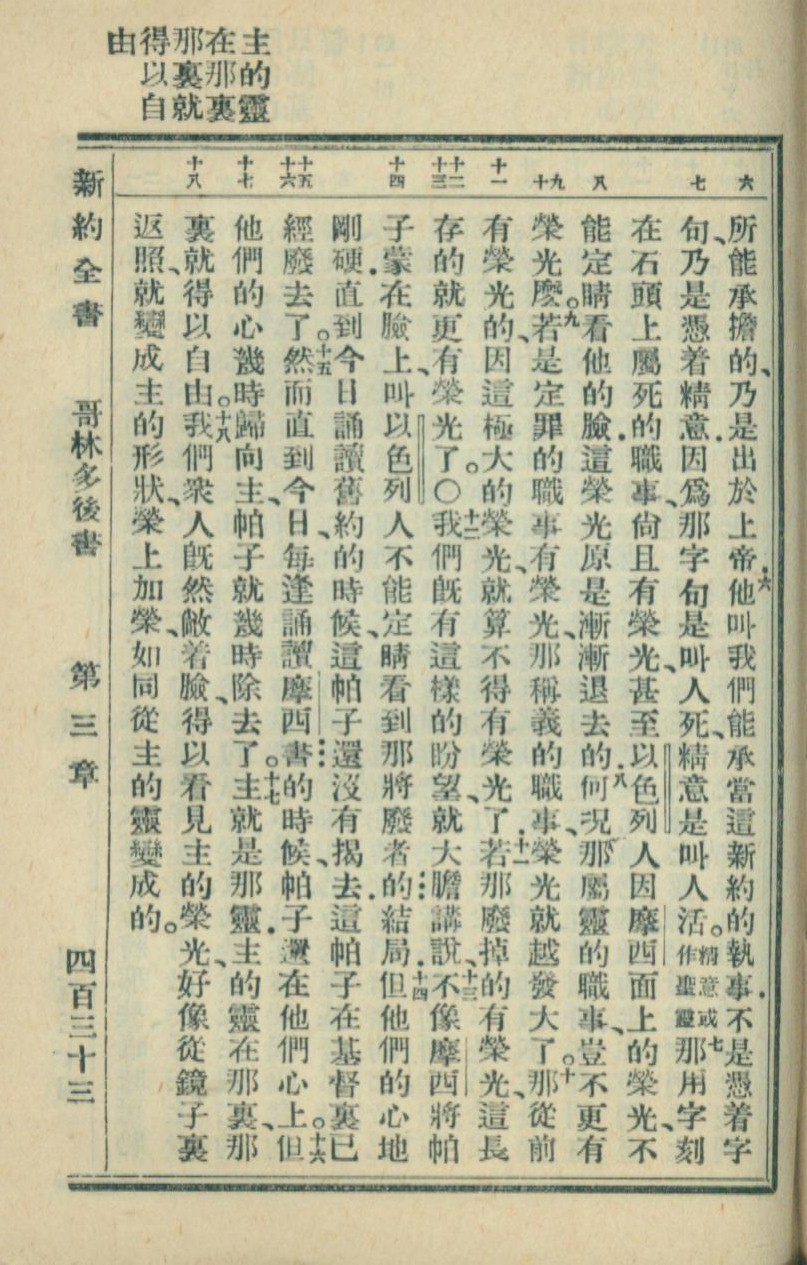 主的靈
在那裏
那裏就
得以自
由
六
七
八
九十
十一
十二十三
十四
十五十六
十七
十八
所能承擔的、乃是出於上帝．六他叫我們能承當這新約的執事．不是憑着字
句、乃是憑着精意．因爲那字句是叫人死、精意是叫人活。精意或作聖靈七那用字刻
在石頭上屬死的職事、尙且有榮光、甚至以色列人因摩西面上的榮光、不
能定睛看他的臉．這榮光原是漸漸退去的．八何况那屬靈的職事、豈不更有
榮光麽。九若是定罪的職事有榮光、那稱義的職事、榮光就越發大了。十那從前
有榮光的、因這極大的榮光、就算不得有榮光了．十一若那廢掉的有榮光、這長
存的就更有榮光了。〇十二我們旣有這樣的盼望、就大膽講說、十三不像摩西將帕
子蒙在臉上、叫以色列人不能定睛看到那將廢者的結局．十四但他們的心地
剛硬．直到今日誦讀舊約的時候、這帕子還沒有揭去．這帕子在基督裏已
經廢去了。十五然而直到今日、每逢誦讀摩西書的時候、帕子還在他們心上。十六但
他們的心幾時歸向主、帕子就幾時除去了。十七主就是那靈．主的靈在那裏、那
裏就得以自由。十八我們衆人旣然敞着臉、得以看見主的榮光、好像從鏡子裏
返照、就變成主的形狀、榮上加榮、如同從主的靈變成的。
新約全書　哥林多後書　第三章　四百三十三